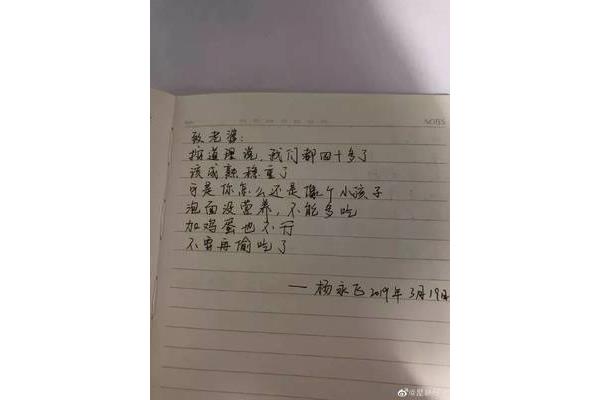 致老婆：
按道理说，我们都四十多了
该成熟稳重了
可是你怎么还是像个小孩子
泡面没营养，不能多吃
加鸡蛋也不行
不要再偷吃了
——杨永飞 2019年3月19日